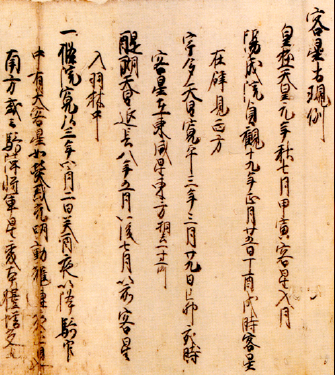 客星古現例
皇極天皇元年秋七月甲寅客星入月
陽成院貞観十九年正月廿五日丁酉戌時客星
在辟見西方
宇多天皇寛平三年三月廿九日己卯亥時
客星在東咸星東方相去一寸所
醍醐天皇延長八年五月以後七月以前客星
入羽林中
一條院寛弘三年四月二日癸酉夜以降騎官
中有大客星如熒惑光明動耀連夜正見
南方或云騎陣将軍星変本體増光